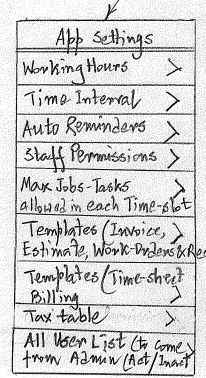 App Settings
Working Hours >
Time Interval >
Auto Reminders >
Staff Permissions >
Max Jobs-Tasks >
allowed in each Time-slot
Templates (Invoice, >
Estimate, Work-Orders & Rec
Templates (Time-sheet >
Billing
Tax table >
All User List (to come >
from Admin (Act/Inact